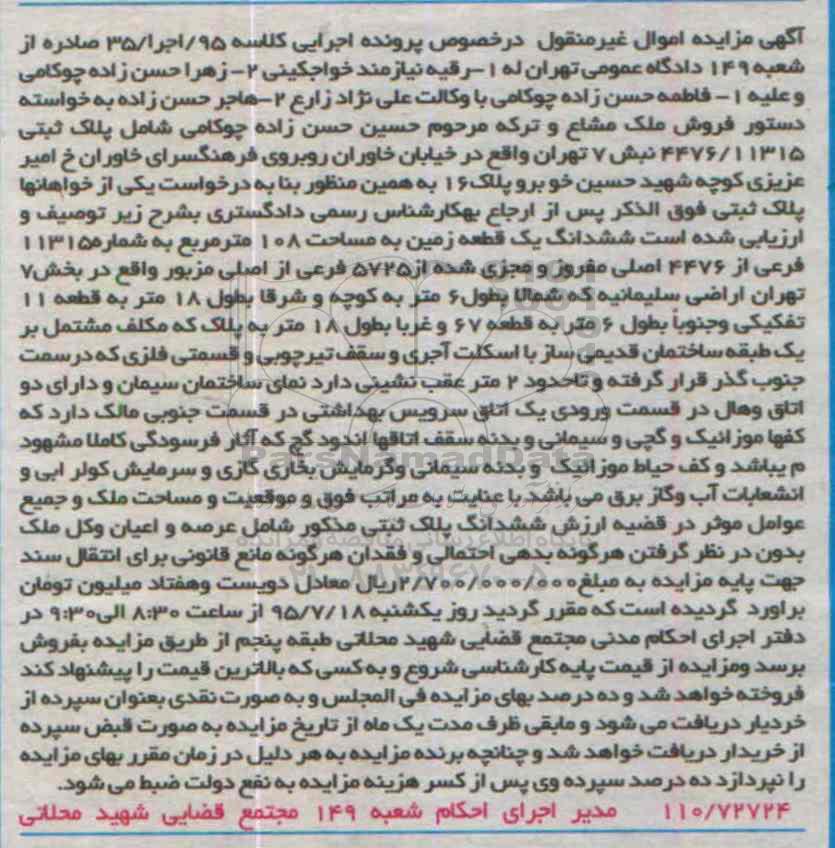 آگهی مزایده اموال غیرمنقول درخصوص پرونده اجرایی کلاسه ۹۵/اجرا/۳۵ صادره از
شعبه ۱۴۹ دادگاه عمومی تهران له ۱-رقیه نیازمند خواجکینی ۲- زهرا حسن زاده چوکامی
و علیه ۱- فاطمه حسن زاده چوکامی با وکالت علی نژاد زارع ۲-هاجر حسن زاده به خواسته
دستور فروش ملک مشاع و ترکه مرحوم حسین حسن زاده چوکامی شامل پلاک ثبتی
۴۴۷۶/۱۱۳۱۵ نبش ۷ تهران واقع در خیابان خاوران روبروی فرهنگسرای خاوران خ امیر
عزیزی کوچه شهید حسین خو برو پلاک۱۶ به همین منظور بنا به درخواست یکی از خواهانها
پلاک ثبتی فوق الذکر پس از ارجاع بهکارشناس رسمی دادگستری بشرح زیر توصیف و
ارزیابی شده است ششدانگ یک قطعه زمین به مساحت ۱۰۸ مترمربع به شماره۱۱۳۱۵
فرعی از ۴۴۷۶ اصلی مفروز و مجزی شده از۵۷۲۵ فرعی از اصلی مزبور واقع در بخش۷
تهران اراضی سلیمانیه که شمالا بطول۶ متر به کوچه و شرقا بطول ۱۸ متر به قطعه ۱۱
تفکیکی وجنوباً بطول ۶ متر به قطعه ۶۷ و غربا بطول ۱۸ متر به پلاک که مکلف مشتمل بر
یک طبقه ساختمان قدیمی ساز با اسکلت آجری و سقف تیرچوبی و قسمتی فلزی که درسمت
جنوب گذر قرار گرفته و تاحدود ۲ متر عقب نشینی دارد نمای ساختمان سیمان و دارای دو
اتاق وهال در قسمت ورودی یک اتاق سرویس بهداشتی در قسمت جنوبی مالک دارد که
کفها موزائیک و گچی و سیمانی و بدنه سقف اتاقها اندود گچ که آثار فرسودگی کاملا مشهود
م یباشد و کف حیاط موزائیک و بدنه سیمانی وگرمایش بخاری گازی و سرمایش کولر ابی و
انشعابات آب وگاز برق می باشد با عنایت به مراتب فوق و موقعیت و مساحت ملک و جمیع
عوامل موثر در قضیه ارزش ششدانگ پلاک ثبتی مذکور شامل عرصه و اعیان وکل ملک
بدون در نظر گرفتن هرگونه بدهی احتمالی و فقدان هرگونه مانع قانونی برای انتقال سند
جهت پایه مزایده به مبلغ۲/۷۰۰/۰۰۰/۰۰۰ریال معادل دویست وهفتاد میلیون تومان
براورد گردیده است که مقرر گردید روز یکشنبه ۹۵/۷/۱۸ از ساعت ۸:۳۰ الی۹:۳۰ در
دفتر اجرای احکام مدنی مجتمع قضایی شهید محلاتی طبقه پنجم از طریق مزایده بفروش
برسد ومزایده از قیمت پایه کارشناسی شروع و به کسی که بالاترین قیمت را پیشنهاد کند
فروخته خواهد شد و ده درصد بهای مزایده فی المجلس و به صورت نقدی بعنوان سپرده از
خردیار دریافت می شود و مابقی ظرف مدت یک ماه از تاریخ مزایده به صورت قبض سپرده
از خریدار دریافت خواهد شد و چنانچه برنده مزایده به هر دلیل در زمان مقرر بهای مزایده
را نپردازد ده درصد سپرده وی پس از کسر هزینه مزایده به نفع دولت ضبط می شود.
۱۱۰/۷۲۷۲۴ مدیر اجرای احکام شعبه ۱۴۹ مجتمع قضایی شهید محلاتی
ParsNamadData